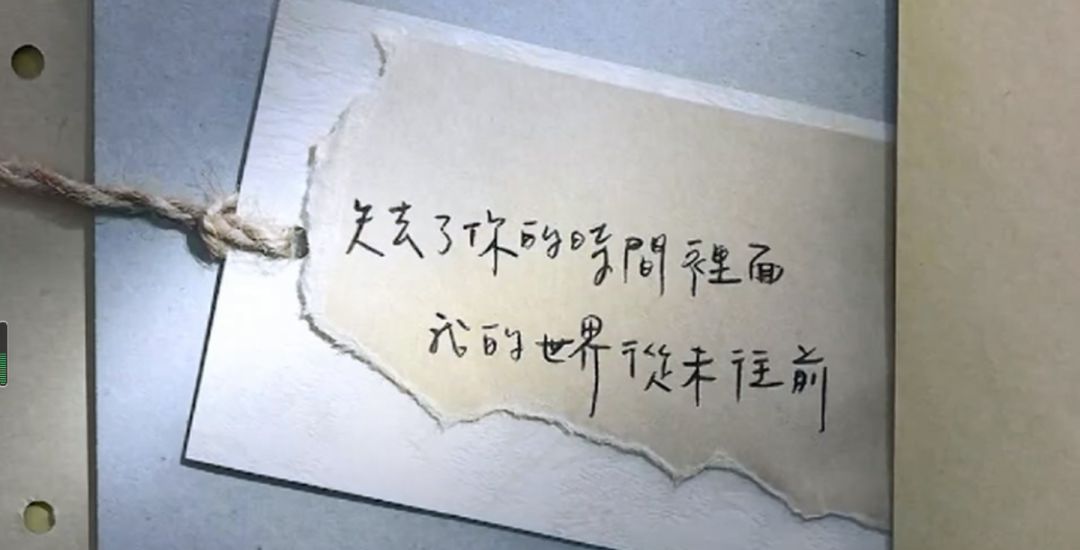 失去了你的時間裡面
我的世界從未往前